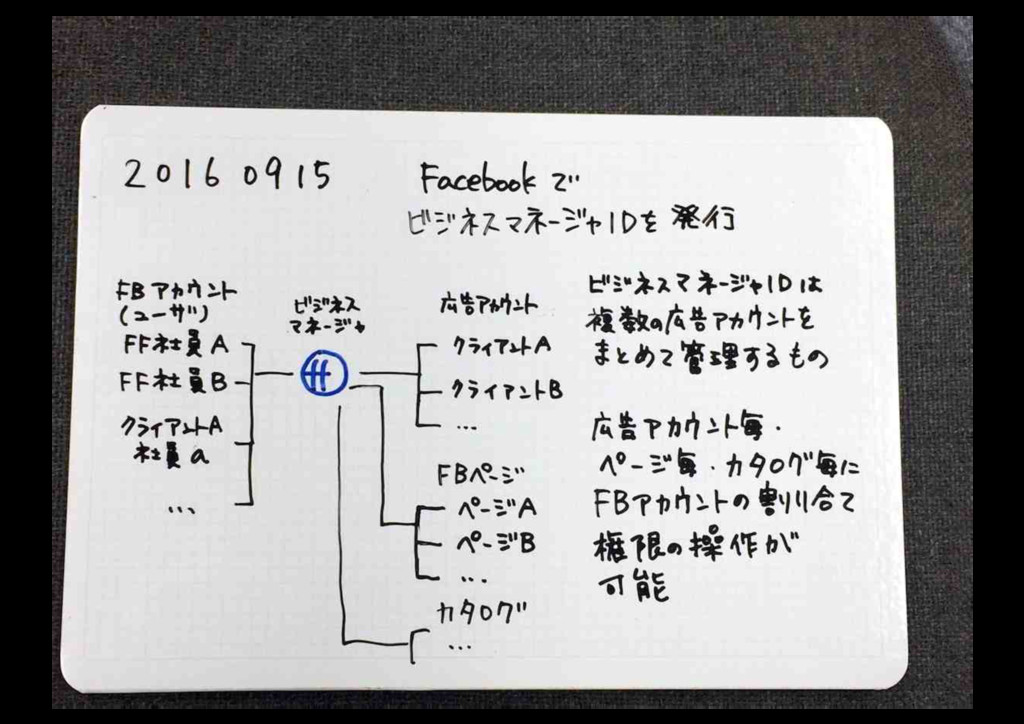 20160915
Facebookで
ビジネスマネージャIDを発行
FBアカウント
(ユーザ)
FF社員A
FF社員B
クライアントA
社員a
...
ビジネス
マネージャ
ff
広告アカウント
クライアントA
クライアントB
...
FBページ
ページA
ページB
...
カタログ
...
ビジネスマネージャIDは
複数の広告アカウントを
まとめて管理するもの
広告アカウント毎・
ページ毎・カタログ毎に
FBアカウントの割り合て
権限の操作が
可能